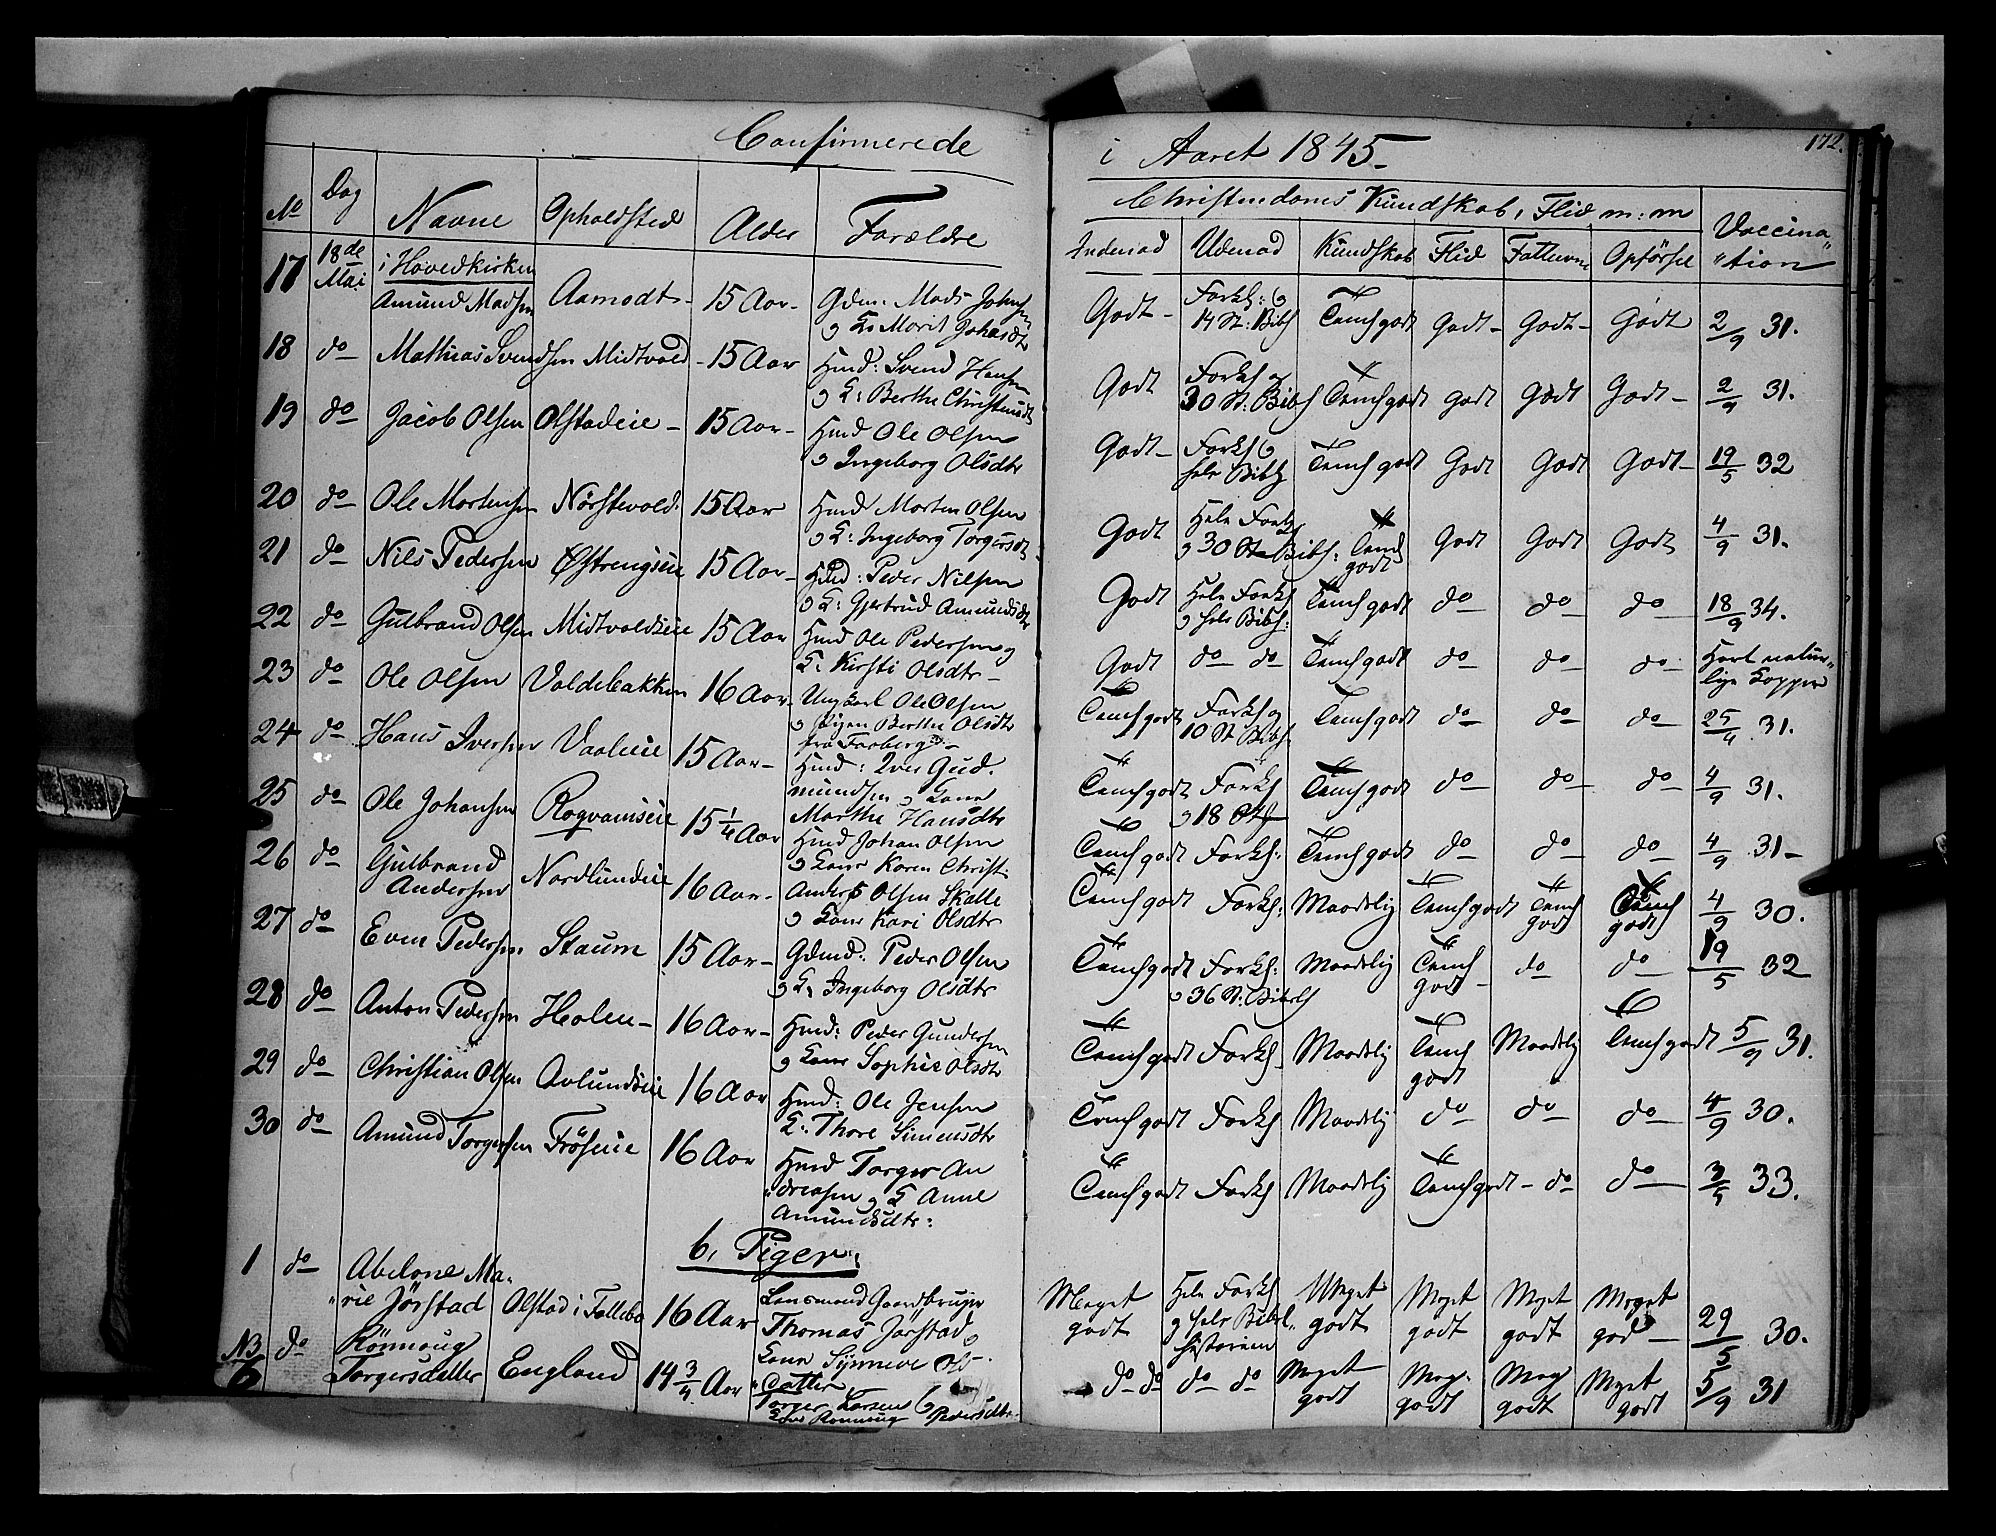 Confirmerede
i Aaret 1845.
172.
No Dag Navne Opholdsted Alder Forældre
Christendoms Kundskab, Flid m: m Vaccina
Indenad Udenad Kundskab Flid Fatteevne Opførsel "tion
17 18de Mai i Hovedkirken
Amund Madsen Aamodt 15 Aar Gdm: Mads Johns
og K: Marit Johnsdtr
Godt Forkl: og 14 St: Bibh Temgodt Godt Godt Godt 2/9 31.
18 do Mathias Svendsen Midtvold 15 Aar Hmd: Svend Hansen
og K: Berthe Christensdtr
Godt Forkl og 30 St: Bibh Temgodt Godt Godt Godt 2/9 31.
19 do Jacob Olsen Olstadeie 15 Aar Hmd Ole Olsen
og Ingeborg Olsdtr
Godt Forkl og hele Bibh Temgodt Godt Godt Godt 19/5 32
20 do Ole Mortensen Nørstevold 15 Aar Hmd Morten Olsen
og K: Ingeborg Torgersdtr
Godt Hele Forkl og 30 St Bibh: Temgodt Godt Godt Godt 4/9 31.
21 do Nils Pedersen Østrengseie 15 Aar Hmd: Peder Nilsen
og K: Gjertrud Amundsdtr
Godt Hele Forkl og hele Bibh: Temgodt do do do 18/9 34.
22 do Gulbrand Olsen Midtvoldseie 15 Aar Hmd Ole Pedersen og
K: Kirsti Olsdtr
Godt do do Temgodt do do do Havt natur"lige Kopper
23 do Ole Olsen Voldebakken 16 Aar Ungkarl Ole Olsen
og Pigen Berthe Olsdtr
fra Faaberg
Temgodt Forkl og 10 St Bibh Temgodt do do do 25/4 31.
24 do Hans Iversen Vaaleie 15 Aar Hmd: Iver Gud.
mundsen og Kone
Marthe Hansdtr
Temgodt Forkl og 18 St Temgodt do do do 4/9 31.
25 do Ole Johansen Rogvamseie 15 1/4 Aar Hmd Johan Olsen
og Kone Karen Christ.
Temgodt Forkl: Temgodt do do do 4/9 31
26 do Gulbrand Andersen Nordlundeie 16 Aar Anders Olsen Skalle
og Kone Kari Olsdtr
Temgodt Forkl: Maadelig Temgodt Temgodt Temgodt 4/9 30.
27 do Even Pedersen Staum 15 Aar Gdmd: Peder Olsen
og K: Ingeborg Olsdtr
Temgodt Forkl: og 36 St: Bibelh Maadelig Temgodt do do 19/5 32
28 do Anton Pedersen Holen 16 Aar Hmd: Peder Gundersen
og Kone Sophie Olsdtr
Temgodt Forkl Maadelig Temgodt Maadelig Temgodt 5/9 31.
29 do Christian Olsen Avlundseie 16 Aar Hmd: Ole Jensen
K: Thore Simensdtr
Temgodt Forkl Maadelig do do do 4/9 30.
30 do Amund Torgersen Frøseie 16 Aar Hmd Torger An
"dreasen og K Anne
Amundsdtr:
Temgodt Forkl Maadelig Temgodt do do 3/9 33.
6, Piger:
1 do Abelone Ma.
"rie Jørstad Olstad i Follebo 16 Aar Lensmand Gaardbruger
Thomas Jørstad og
Kone Synneve Ols
"Datter
Meget godt Hele Forkl og hele Bibel. historien Meget godt Meget godt Meget godt Meget god 29/5 30.
NB 6 do Rønnoug
Torgersdatter England 14 3/4 Aar Torger Larsen og
Kone Rønnoug Pedersdtr
do do do do Meget godt Meg. godt Meg godt Meget godt 5/9 31